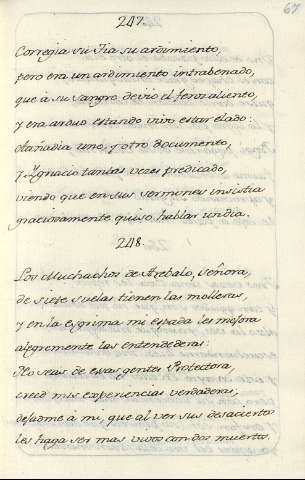 67
247.
Corregia su Tia su ardimiento,
pero era un ardimiento intrabenado,
que à su sangre devio el feroz aliento,
y era arduo estando vivo estar elado:
Añadia uno, y otro documento,
y Ygnacio tantas vezes predicado,
viendo que en sus sermones insistia
graciosamente quiso hablar un dia.
248.
Los Muchachos de Arebalo, señora,
de siete suelas tienen las molleras,
y en la esgrima mi espada les mejora
alegremente las entendederas:
No seas de essas gentes Protectora,
creed mis experiencias verdaderas,
dejadme à mi, que al ver sus desaciertos
les haga ser mas vivos con dos muertos.